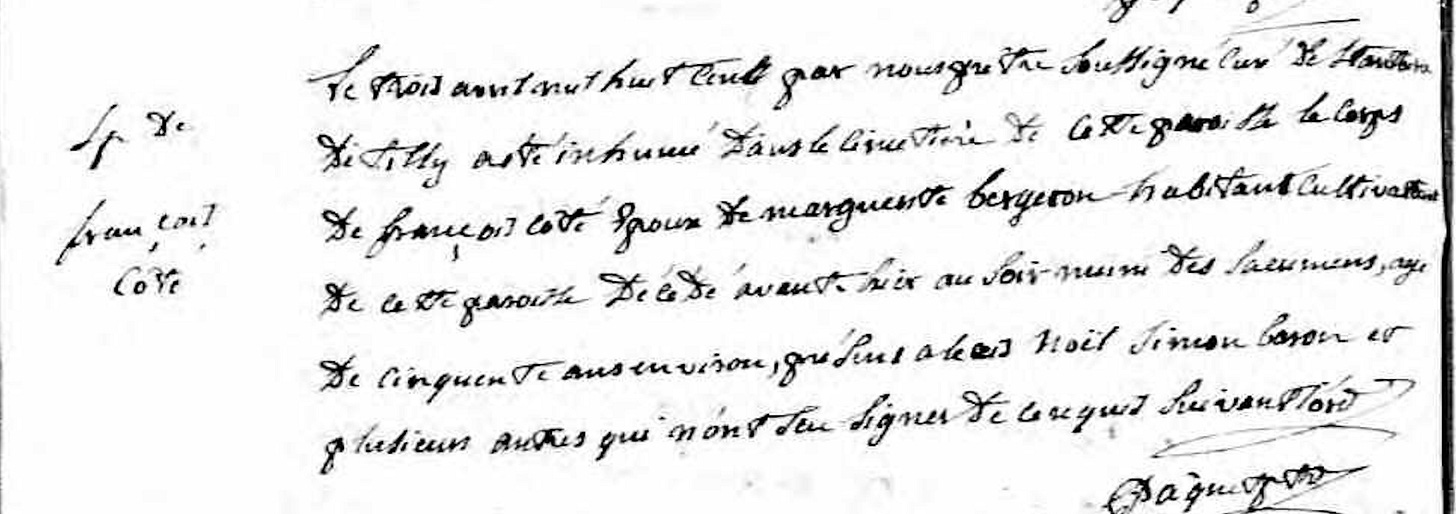 Sp De
françois
Côté
le trois avril mil huit cent par nous prêtre soussigné curé de St antoine
De Tilly a eté inhumé Dans le cimetière De cette paroisse le corps
De françois côté Epoux De marguerite bergeron habitant cultivateur
De cette paroisse Décédé avant hier au soir muni Des sacremens, agé
De cinquente ans environ, présens alexis Noël Simon baron et
plusieurs autres qui n'ont seu signer De ce requis suivant l'ord
Pâquet ptr